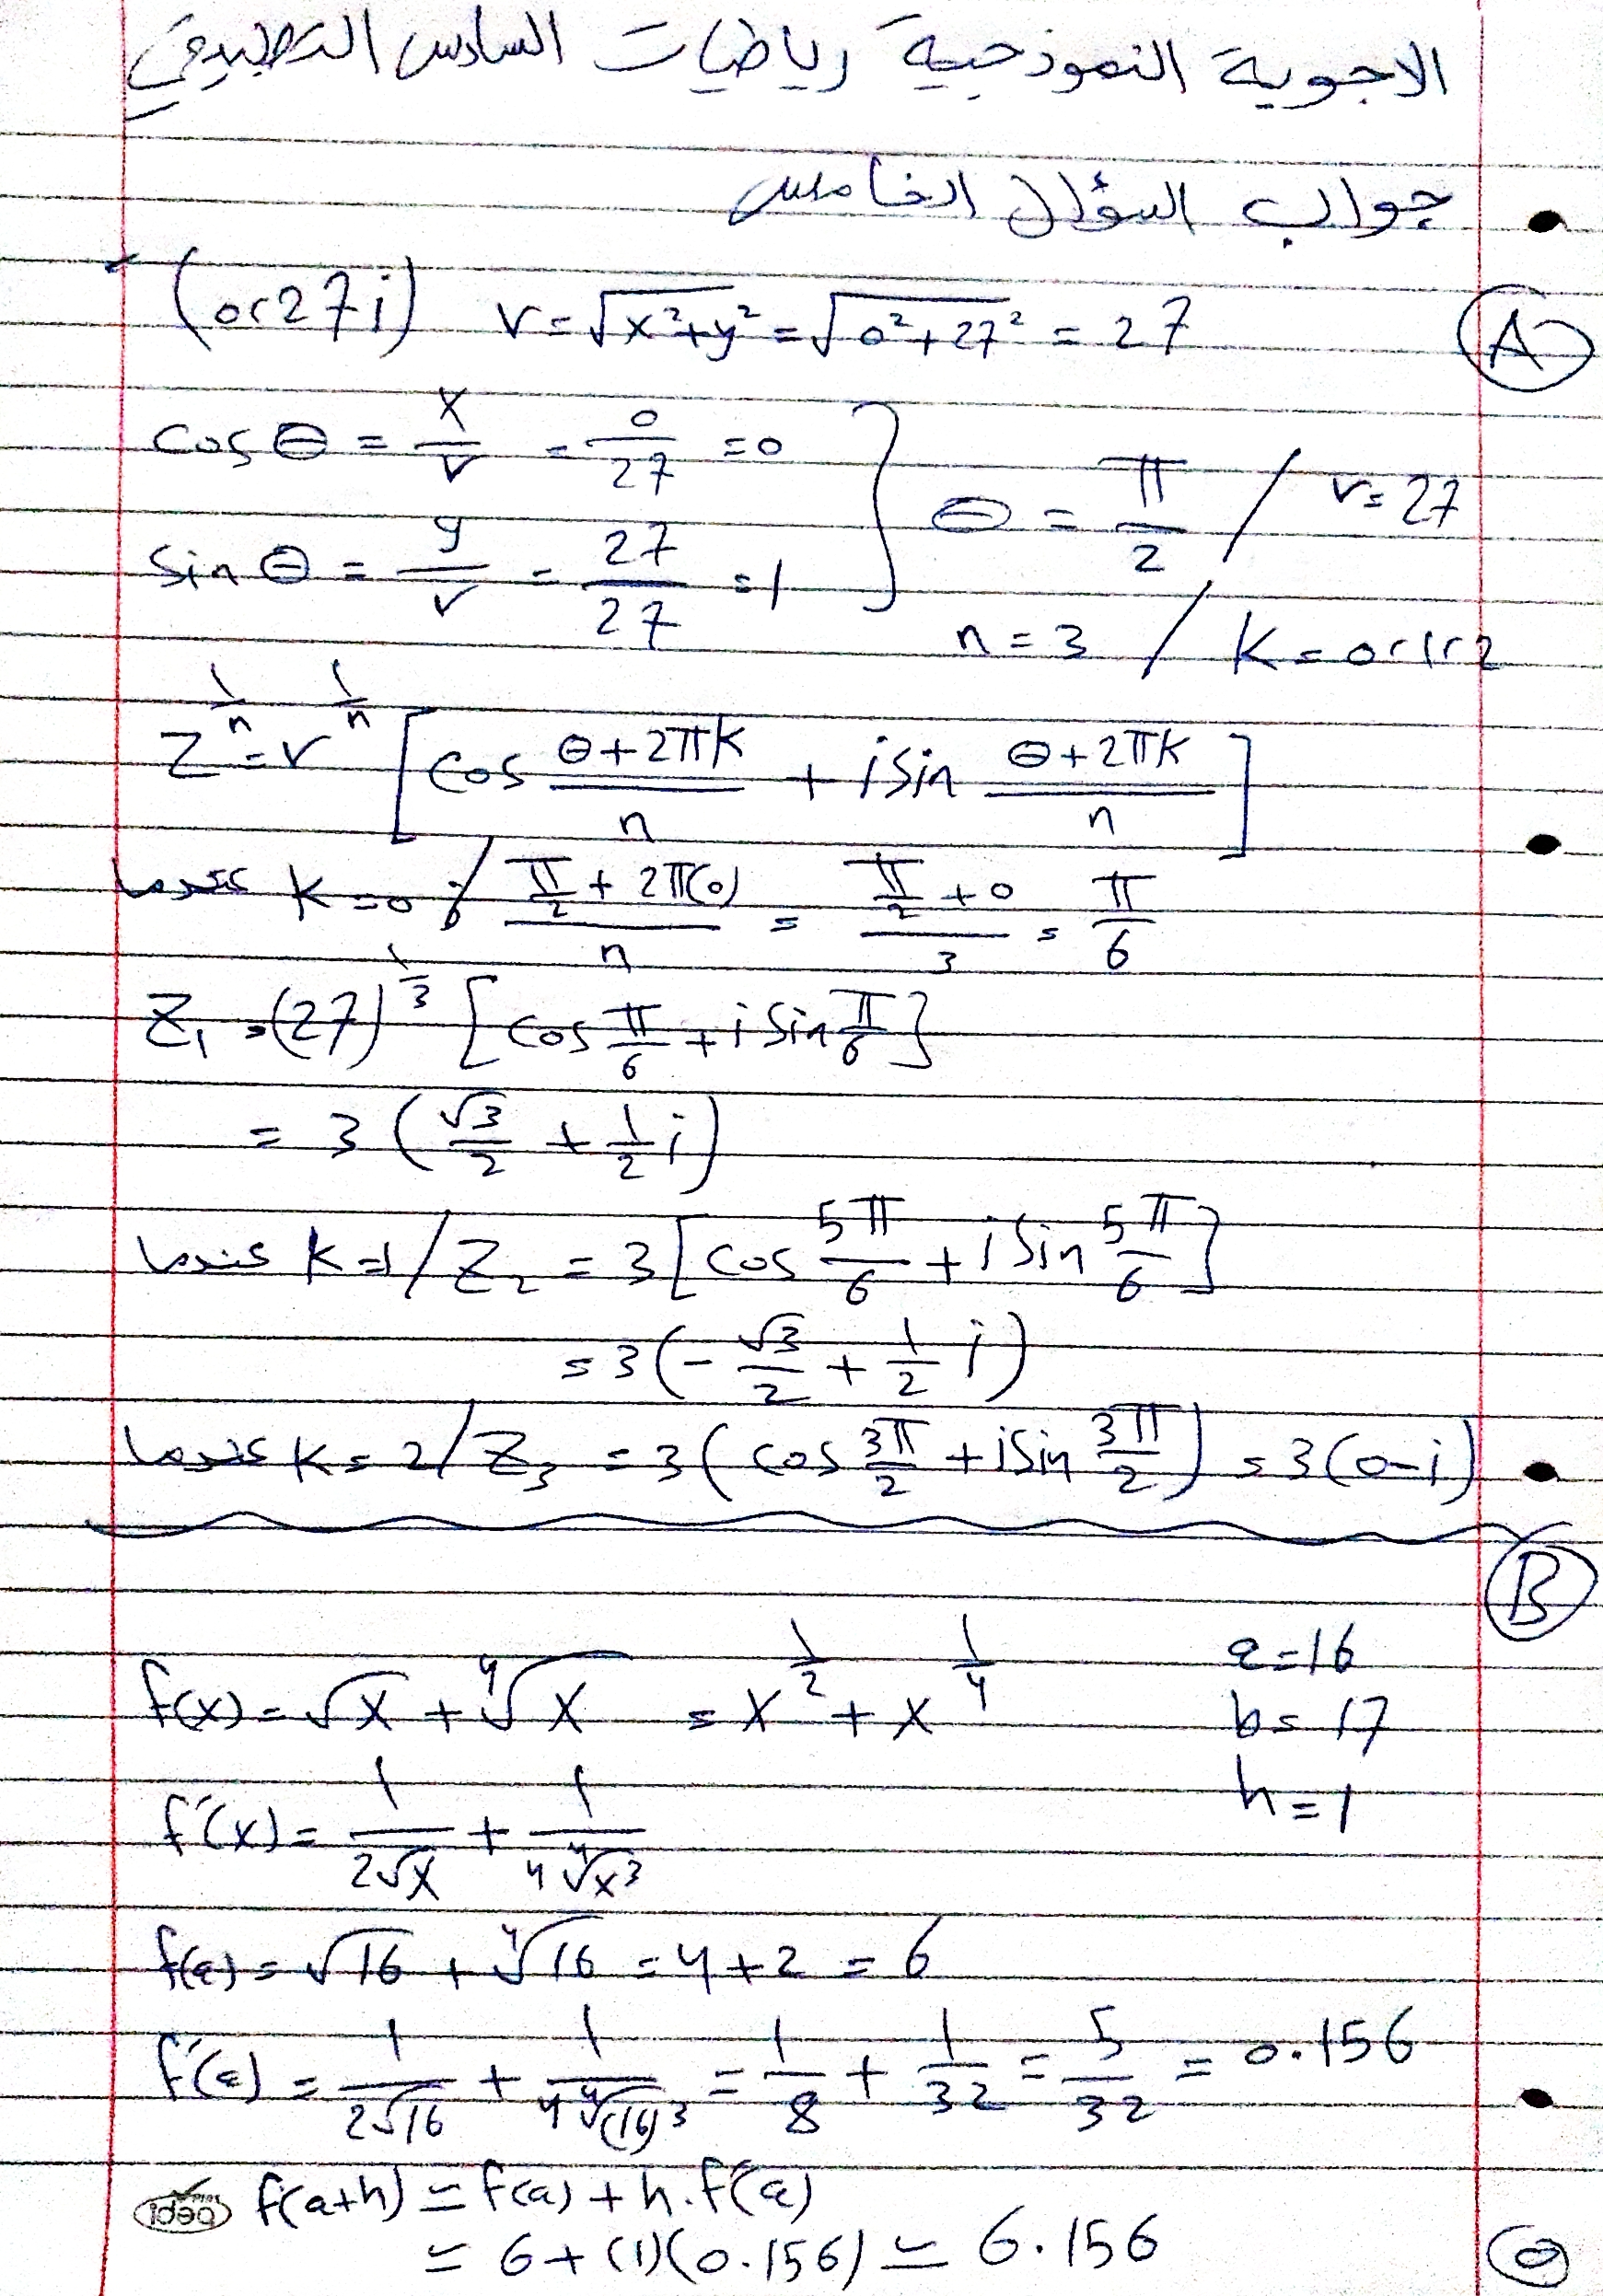 الاجوبة النموذجية رياضيات السادس التطبيقي
جواب السؤال الخامس
(A)
(0, 27i) r = √(x²+y²) = √(0²+27²) = 27
cos θ = x/r = 0/27 = 0
θ = π/2 / r = 27
sin θ = y/r = 27/27 = 1
n = 3 / K = 0, 1, 2
Z^(1/n) = r^(1/n) [cos (θ+2πK)/n + i sin (θ+2πK)/n]
عندما K = 0 / (π/2 + 2π(0))/n = (π/2 + 0)/3 = π/6
Z₁ = (27)^(1/3) [cos π/6 + i sin π/6]
= 3 (√3/2 + 1/2 i)
عندما K = 1 / Z₂ = 3 [cos 5π/6 + i sin 5π/6]
= 3 (-√3/2 + 1/2 i)
عندما K = 2 / Z₃ = 3 (cos 3π/2 + i sin 3π/2) = 3(0-i)
(B)
f(x) = √x + ⁴√x = x^(1/2) + x^(1/4)
a = 16
b = 17
h = 1
f′(x) = 1/(2√x) + 1/(4 ⁴√x³)
f(a) = √16 + ⁴√16 = 4 + 2 = 6
f′(a) = 1/(2√16) + 1/(4 ⁴√(16)³) = 1/8 + 1/32 = 5/32 = 0.156
f(a+h) ≃ f(a) + h.f′(a)
≃ 6 + (1)(0.156) ≃ 6.156
idea